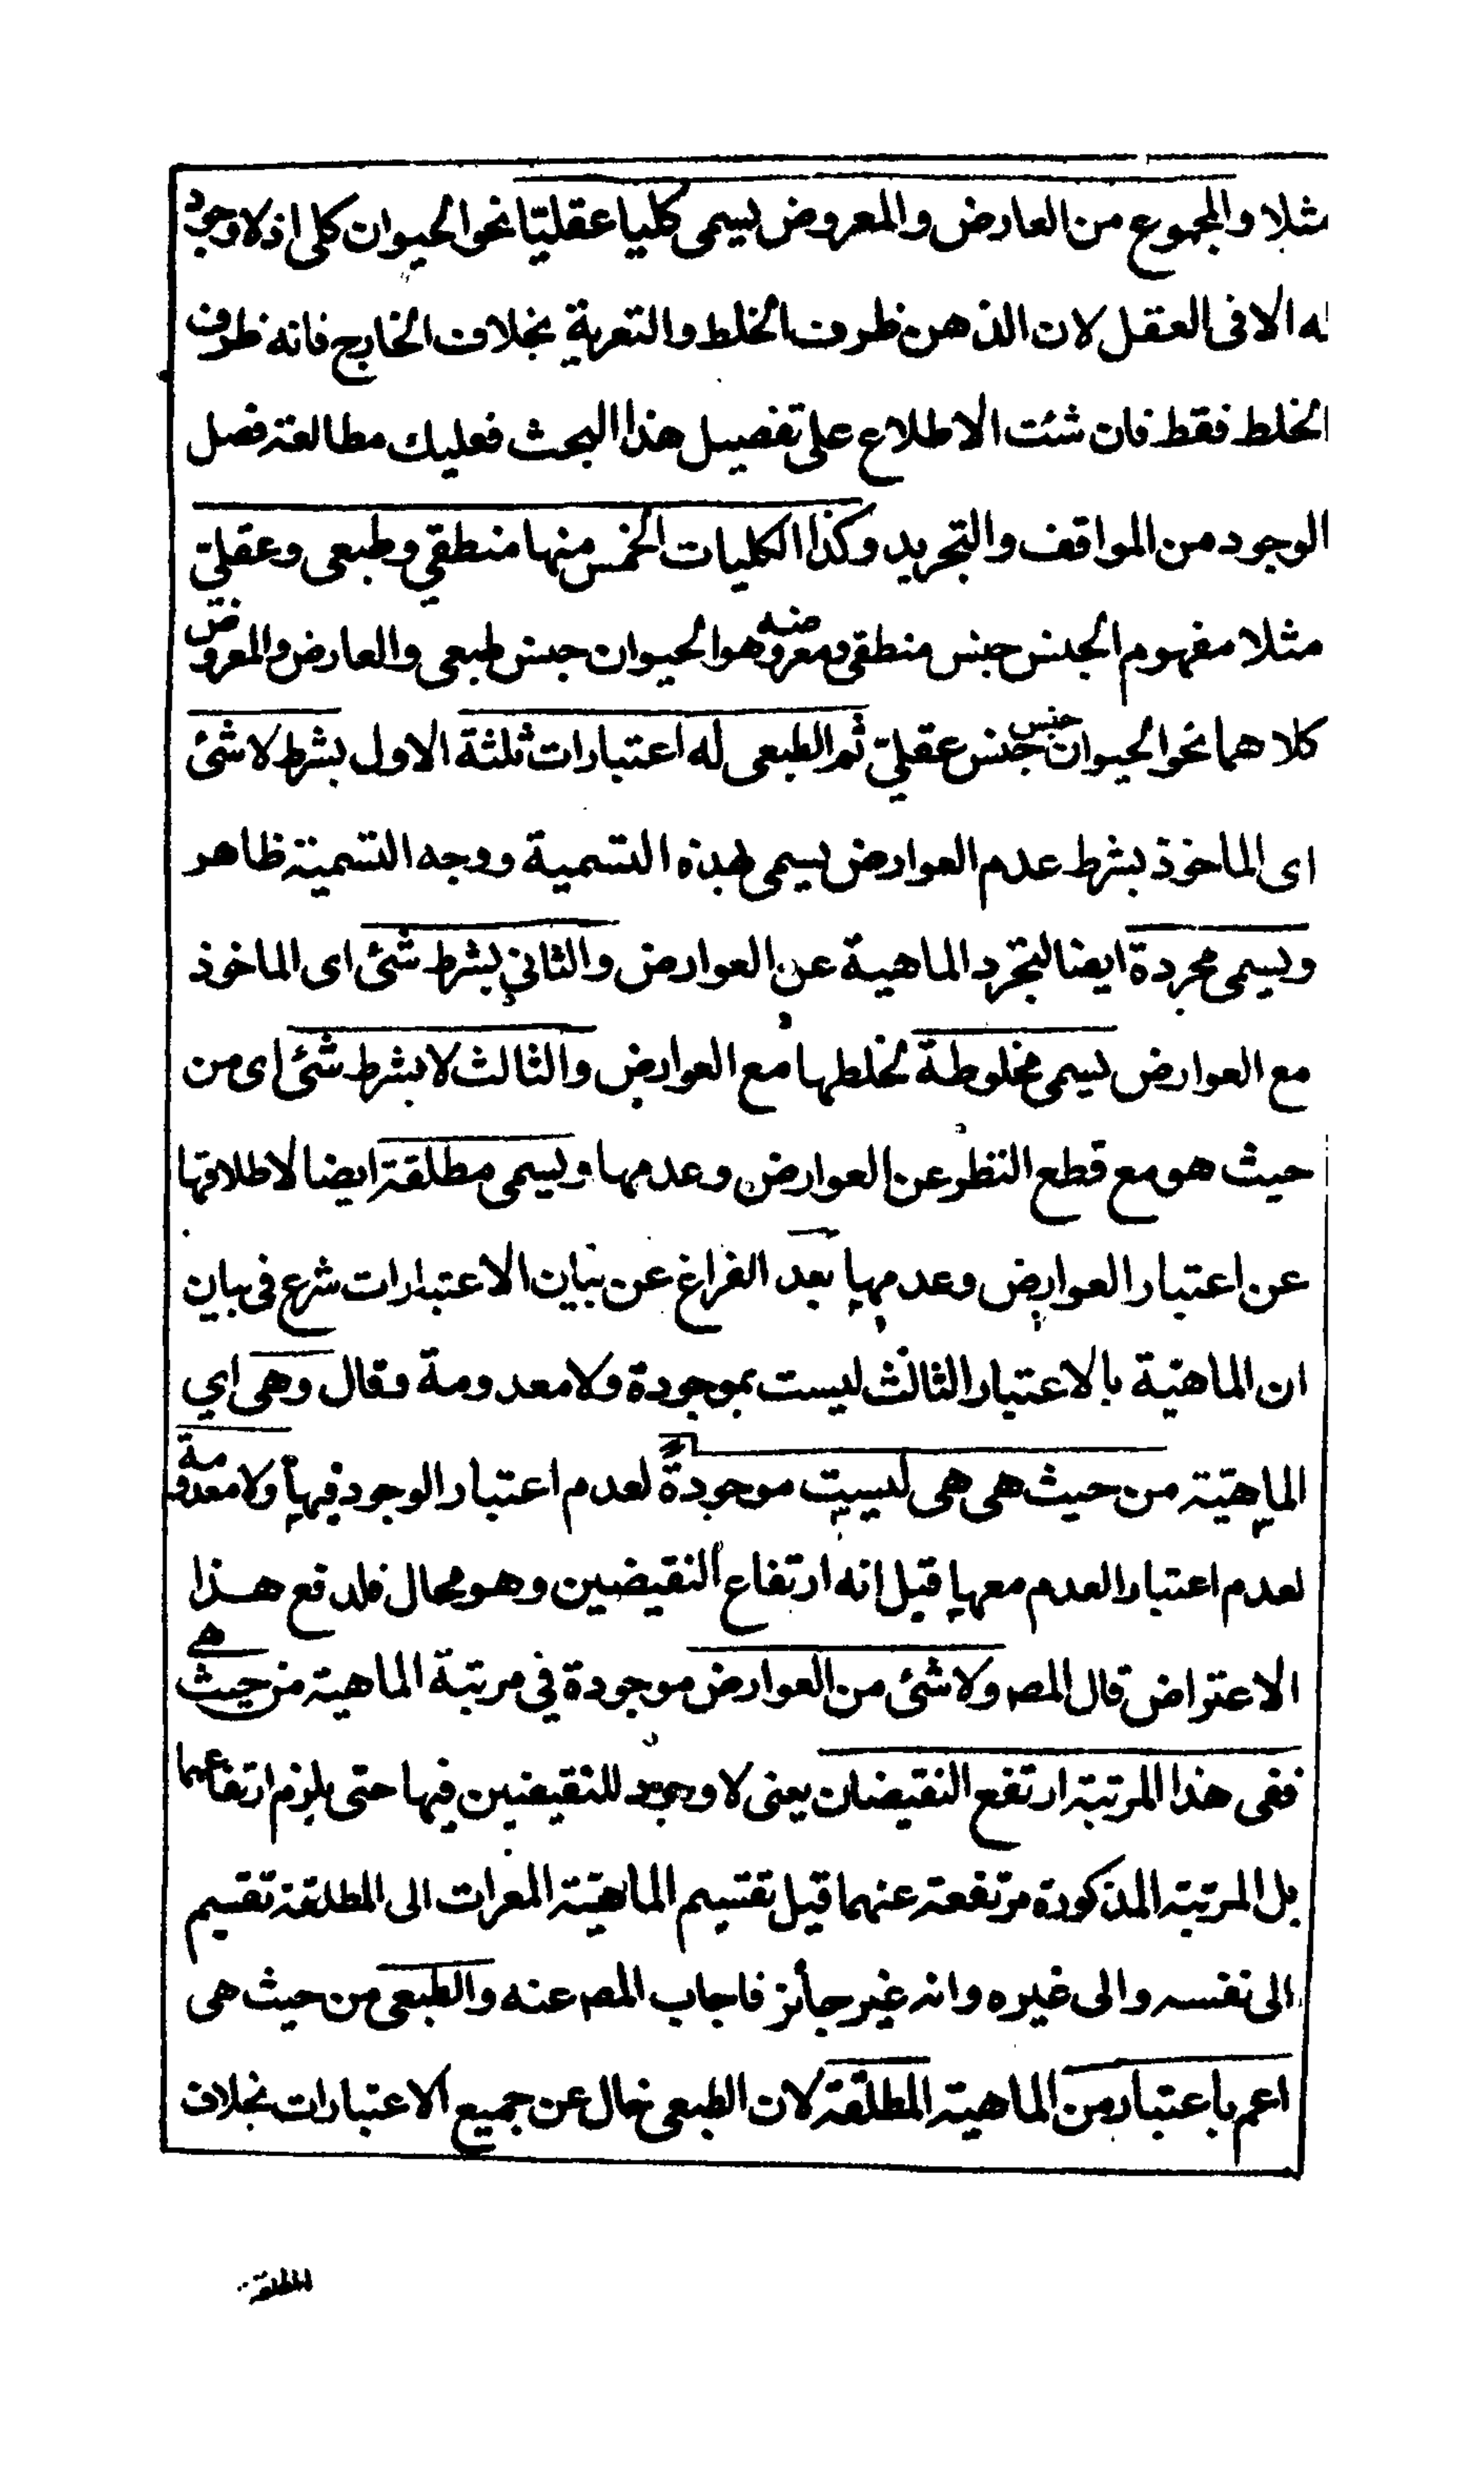 مثلا والمجموع من العارض والمعروض يسمى كليا عقليّا نحو الحيوان كلى اذ لا وجود
له الا فى العقل لان الذهن ظرف الخلط والتعرية بخلاف الخارج فانه ظرف
الخلط فقط فان شئت الاطلاع على تفصيل هذا البحث فعليك مطالعة فصل
الوجود من المواقف والتجريد وكذا الكليات الخمس منها منطقي وطبعى وعقليّ
مثلا مفهوم الجنس جنس منطقى ومعروضه وهو الحيوان جنس طبعى والعارض والمعروض
كلاهما نحو الحيوان جنس جنس عقليّ ثم الطبعى له اعتبارات ثلثة الاول بشرط لا شئ
اى الماخوذ بشرط عدم العوارض يسمى بهذه التسمية ووجه التسمية ظاهر
ويسمى مجردة ايضا لتجرد الماهية عن العوارض والثاني بشرط شئ اى الماخوذ
مع العوارض يسمى مخلوطة لخلطها مع العوارض والثالث لا بشرط شئ اى من
حيث هو مع قطع النظر عن العوارض وعدمها ويسمى مطلقة ايضا لاطلاقها
عن اعتبار العوارض وعدمها بعد الفراغ عن بيان الاعتبارات شرع فى بيان
ان الماهيّة بالاعتبار الثالث ليست بموجودة ولا معدومة وقال وهى اي
الماهيّة من حيث هى هى ليست موجودة لعدم اعتبار الوجود فيها ولا معدومة
لعدم اعتبار العدم معها قيل انه ارتفاع النقيضين وهو محال فلدفع هذا
الاعتراض قال المص ولا شئ من العوارض موجودة في مرتبة الماهية من حيث هى
ففى هذا المرتبة ارتفع النقيضان يعنى لا وجود للنقيضين فيها حتى يلزم ارتفاعهما
بل المرتبة المذكورة مرتفعة عنهما قيل تقسيم الماهيّة المعرات الى المطلقة تقسيم
الى نفسه والى غيره وانه غير جائز فاجاب المص عنه والطبعى من حيث هى
اعم باعتبار من الماهية المطلقة لان الطبعى خال عن جميع الاعتبارات بخلاف
المطلقة